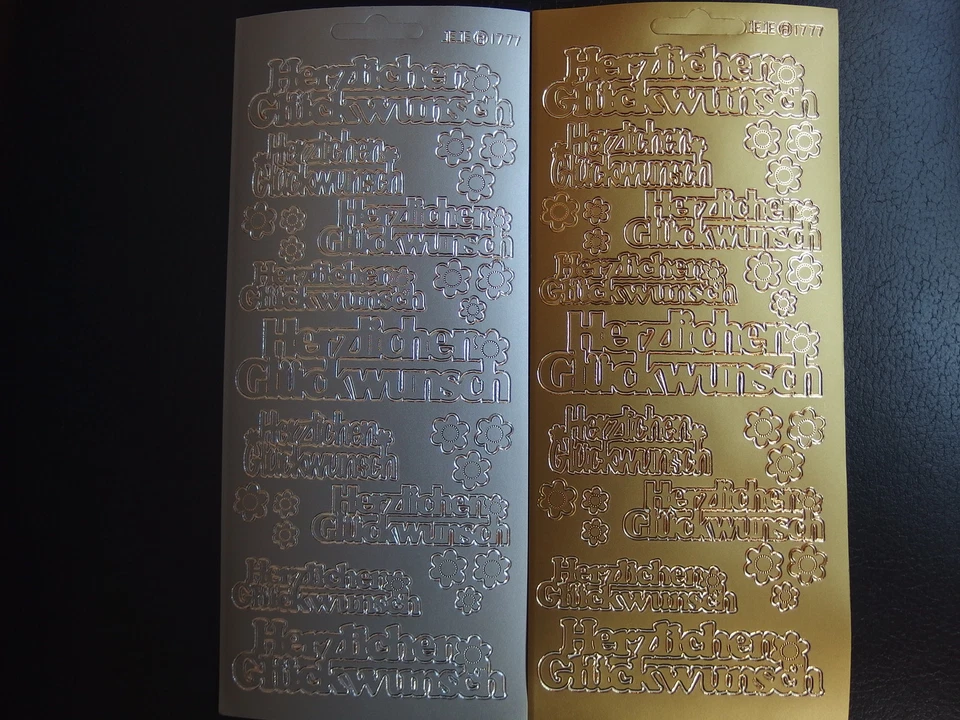 JEJE ® 1777
Herzlichen
Glückwunsch
Herzlichen
Glückwunsch
Herzlichen
Glückwunsch
Herzlichen
Glückwunsch
Herzlichen
Glückwunsch
Herzlichen
Glückwunsch
Herzlichen
Glückwunsch
Herzlichen
Glückwunsch
Herzlichen
Glückwunsch
JEJE ® 1777
Herzlichen
Glückwunsch
Herzlichen
Glückwunsch
Herzlichen
Glückwunsch
Herzlichen
Glückwunsch
Herzlichen
Glückwunsch
Herzlichen
Glückwunsch
Herzlichen
Glückwunsch
Herzlichen
Glückwunsch
Herzlichen
Glückwunsch